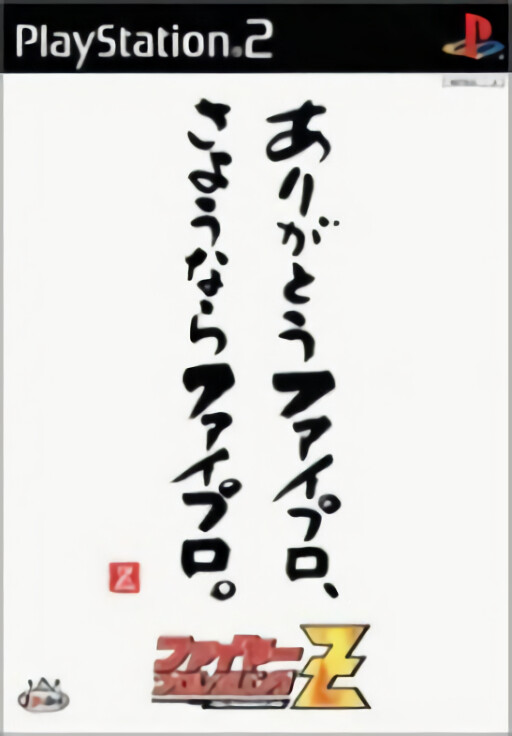 PlayStation.2
ありがとうファイプロ、
さようならファイプロ。
Z
ファイヤー
プロレスリング
Z